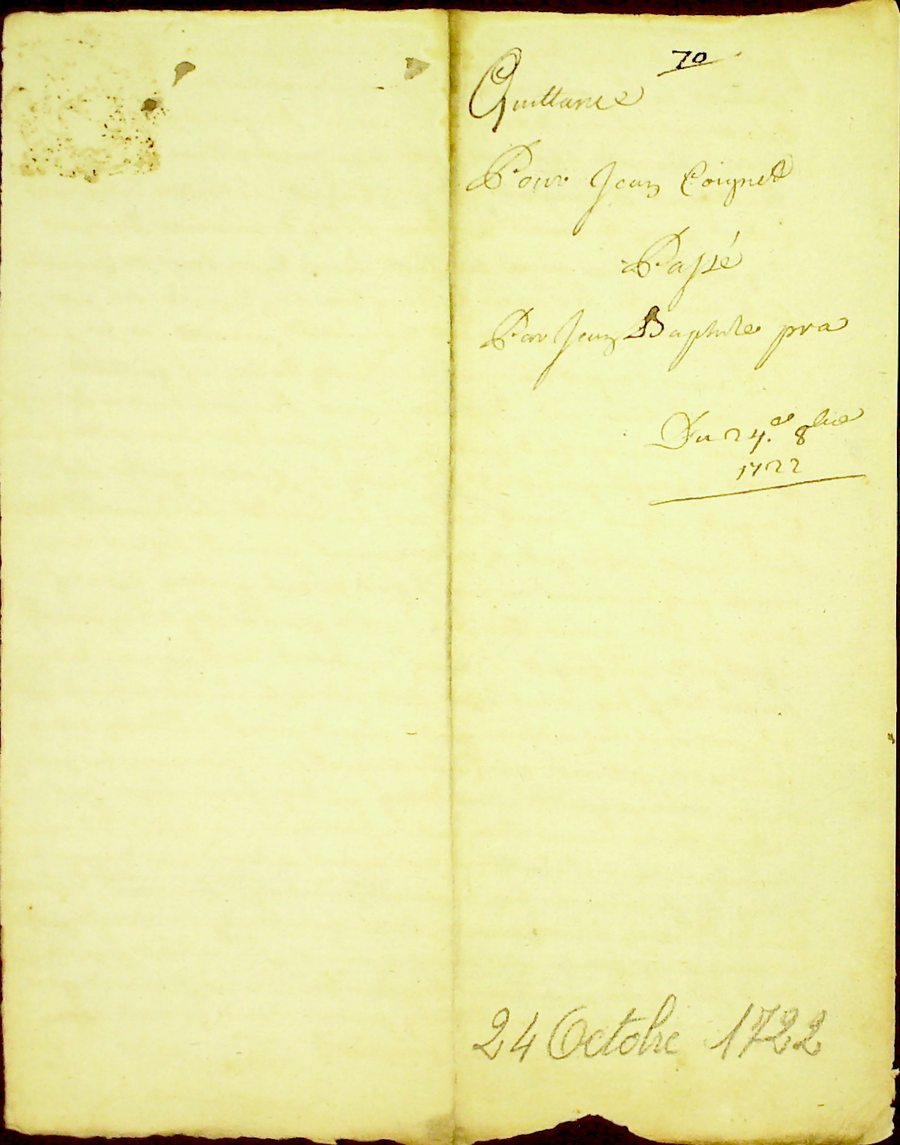 70
Quittance
Pour Jean Coignet
Passé
Par Jean Baptiste pra
Du 24.e 8bre
1722
24 Octobre 1722